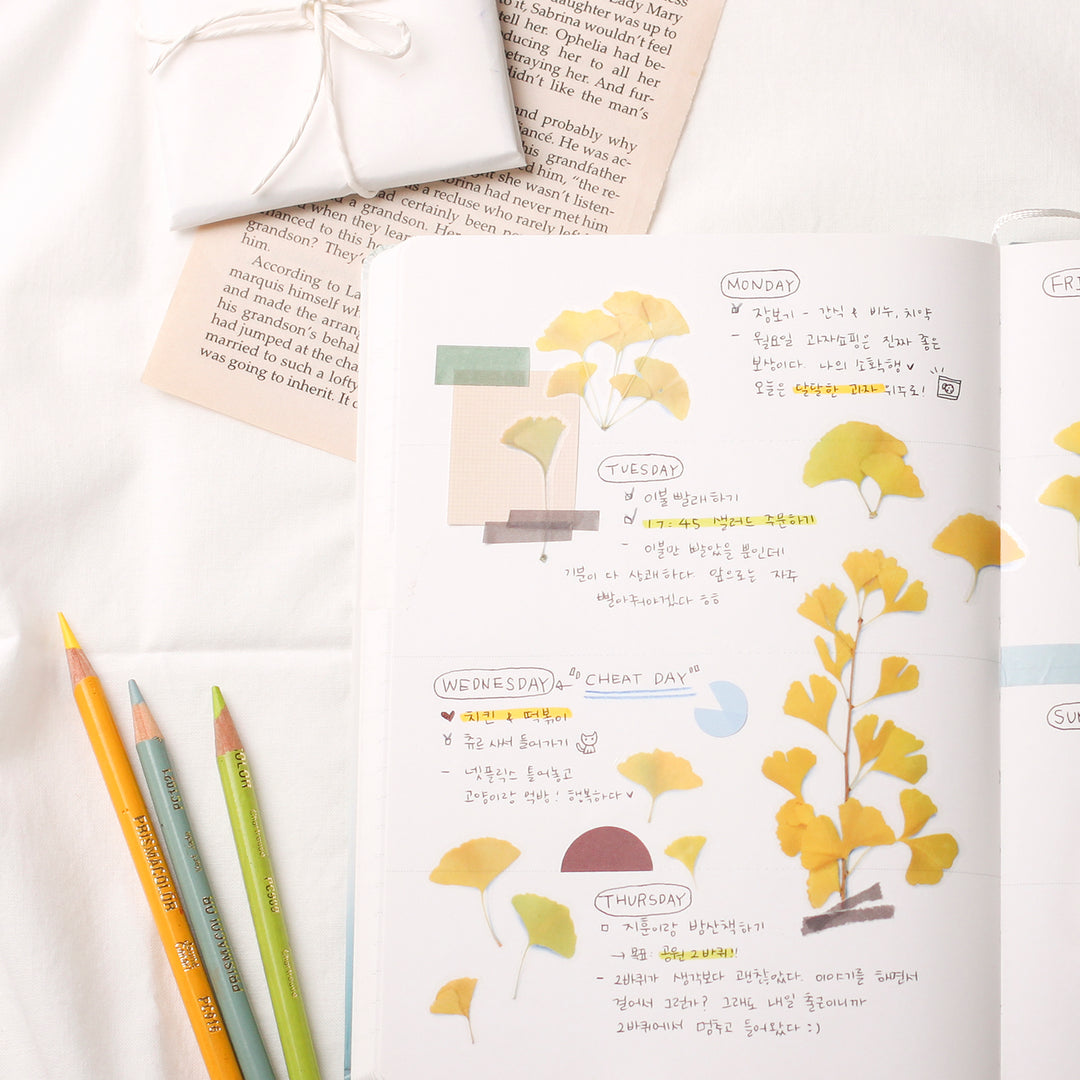 Lady Mary
daughter was up to
to it, Sabrina wouldn't feel
tell her. Ophelia had be-
ducing her to all her
etraying her. And fur-
didn't like the man's
and probably why
iancé. He was ac-
his grandfather
him, "the re-
she wasn't listen-
brina had never met him
as a recluse who rarely left
had certainly been
a grandson. Her
when they lear
anced to this ho
grandson? They'
him.
According to La
marquis himself wh
and made the arran
his grandson's behal
had jumped at the cha
married to such a lofty
was going to inherit. It
MONDAY
장보기 - 간식 & 비누, 치약
- 월요일 과자쇼핑은 진짜 좋은
보상이다. 나의 소확행
오늘은 달달한 과자 위주로!
TUESDAY
이불 빨래하기
17:45 샐러드 주문하기
- 이불만 빨았을 뿐인데
기분이 다 상쾌하다. 앞으로는 자주
빨아줘야겠다 ㅎㅎ
WEDNESDAY ← "CHEAT DAY"
치킨 & 떡볶이
츄르 사서 들어가기
- 넷플릭스 틀어놓고
고양이랑 먹방! 행복하다
THURSDAY
지훈이랑 밤산책하기
→ 목표: 공원 2바퀴!!
- 2바퀴가 생각보다 괜찮았다. 이야기를 하면서
걸어서 그런가? 그래도 내일 출근이니까
2바퀴에서 멈추고 들어왔다 :)
FRI
SUN
PRISMACOLOR
PRISMACOLOR